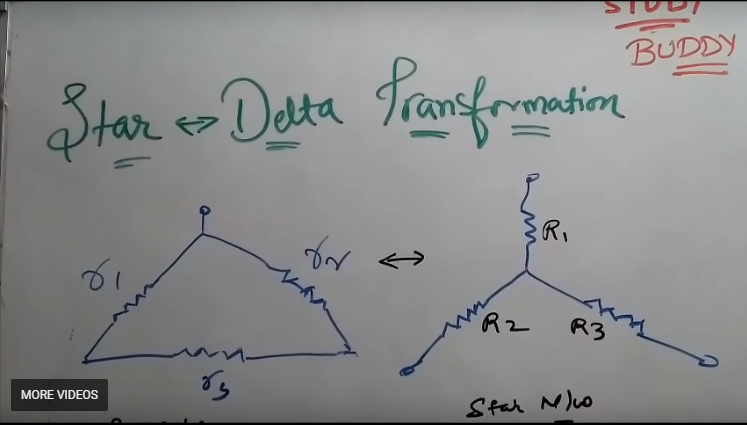 STUDY
BUDDY
Star ↔ Delta Transformation
r1
r2
↔
R1
R2
R3
r3
MORE VIDEOS
Star N/w